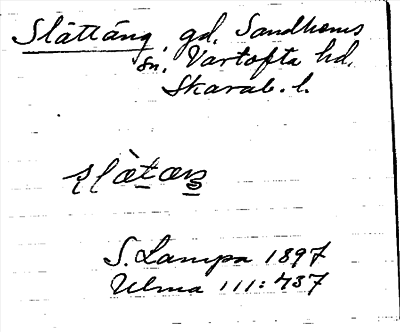 Slättäng, gd, Sandhems
sn. Vartofta hd,
Skarab. l.
S. Lampa 1897
Ulma 111:437